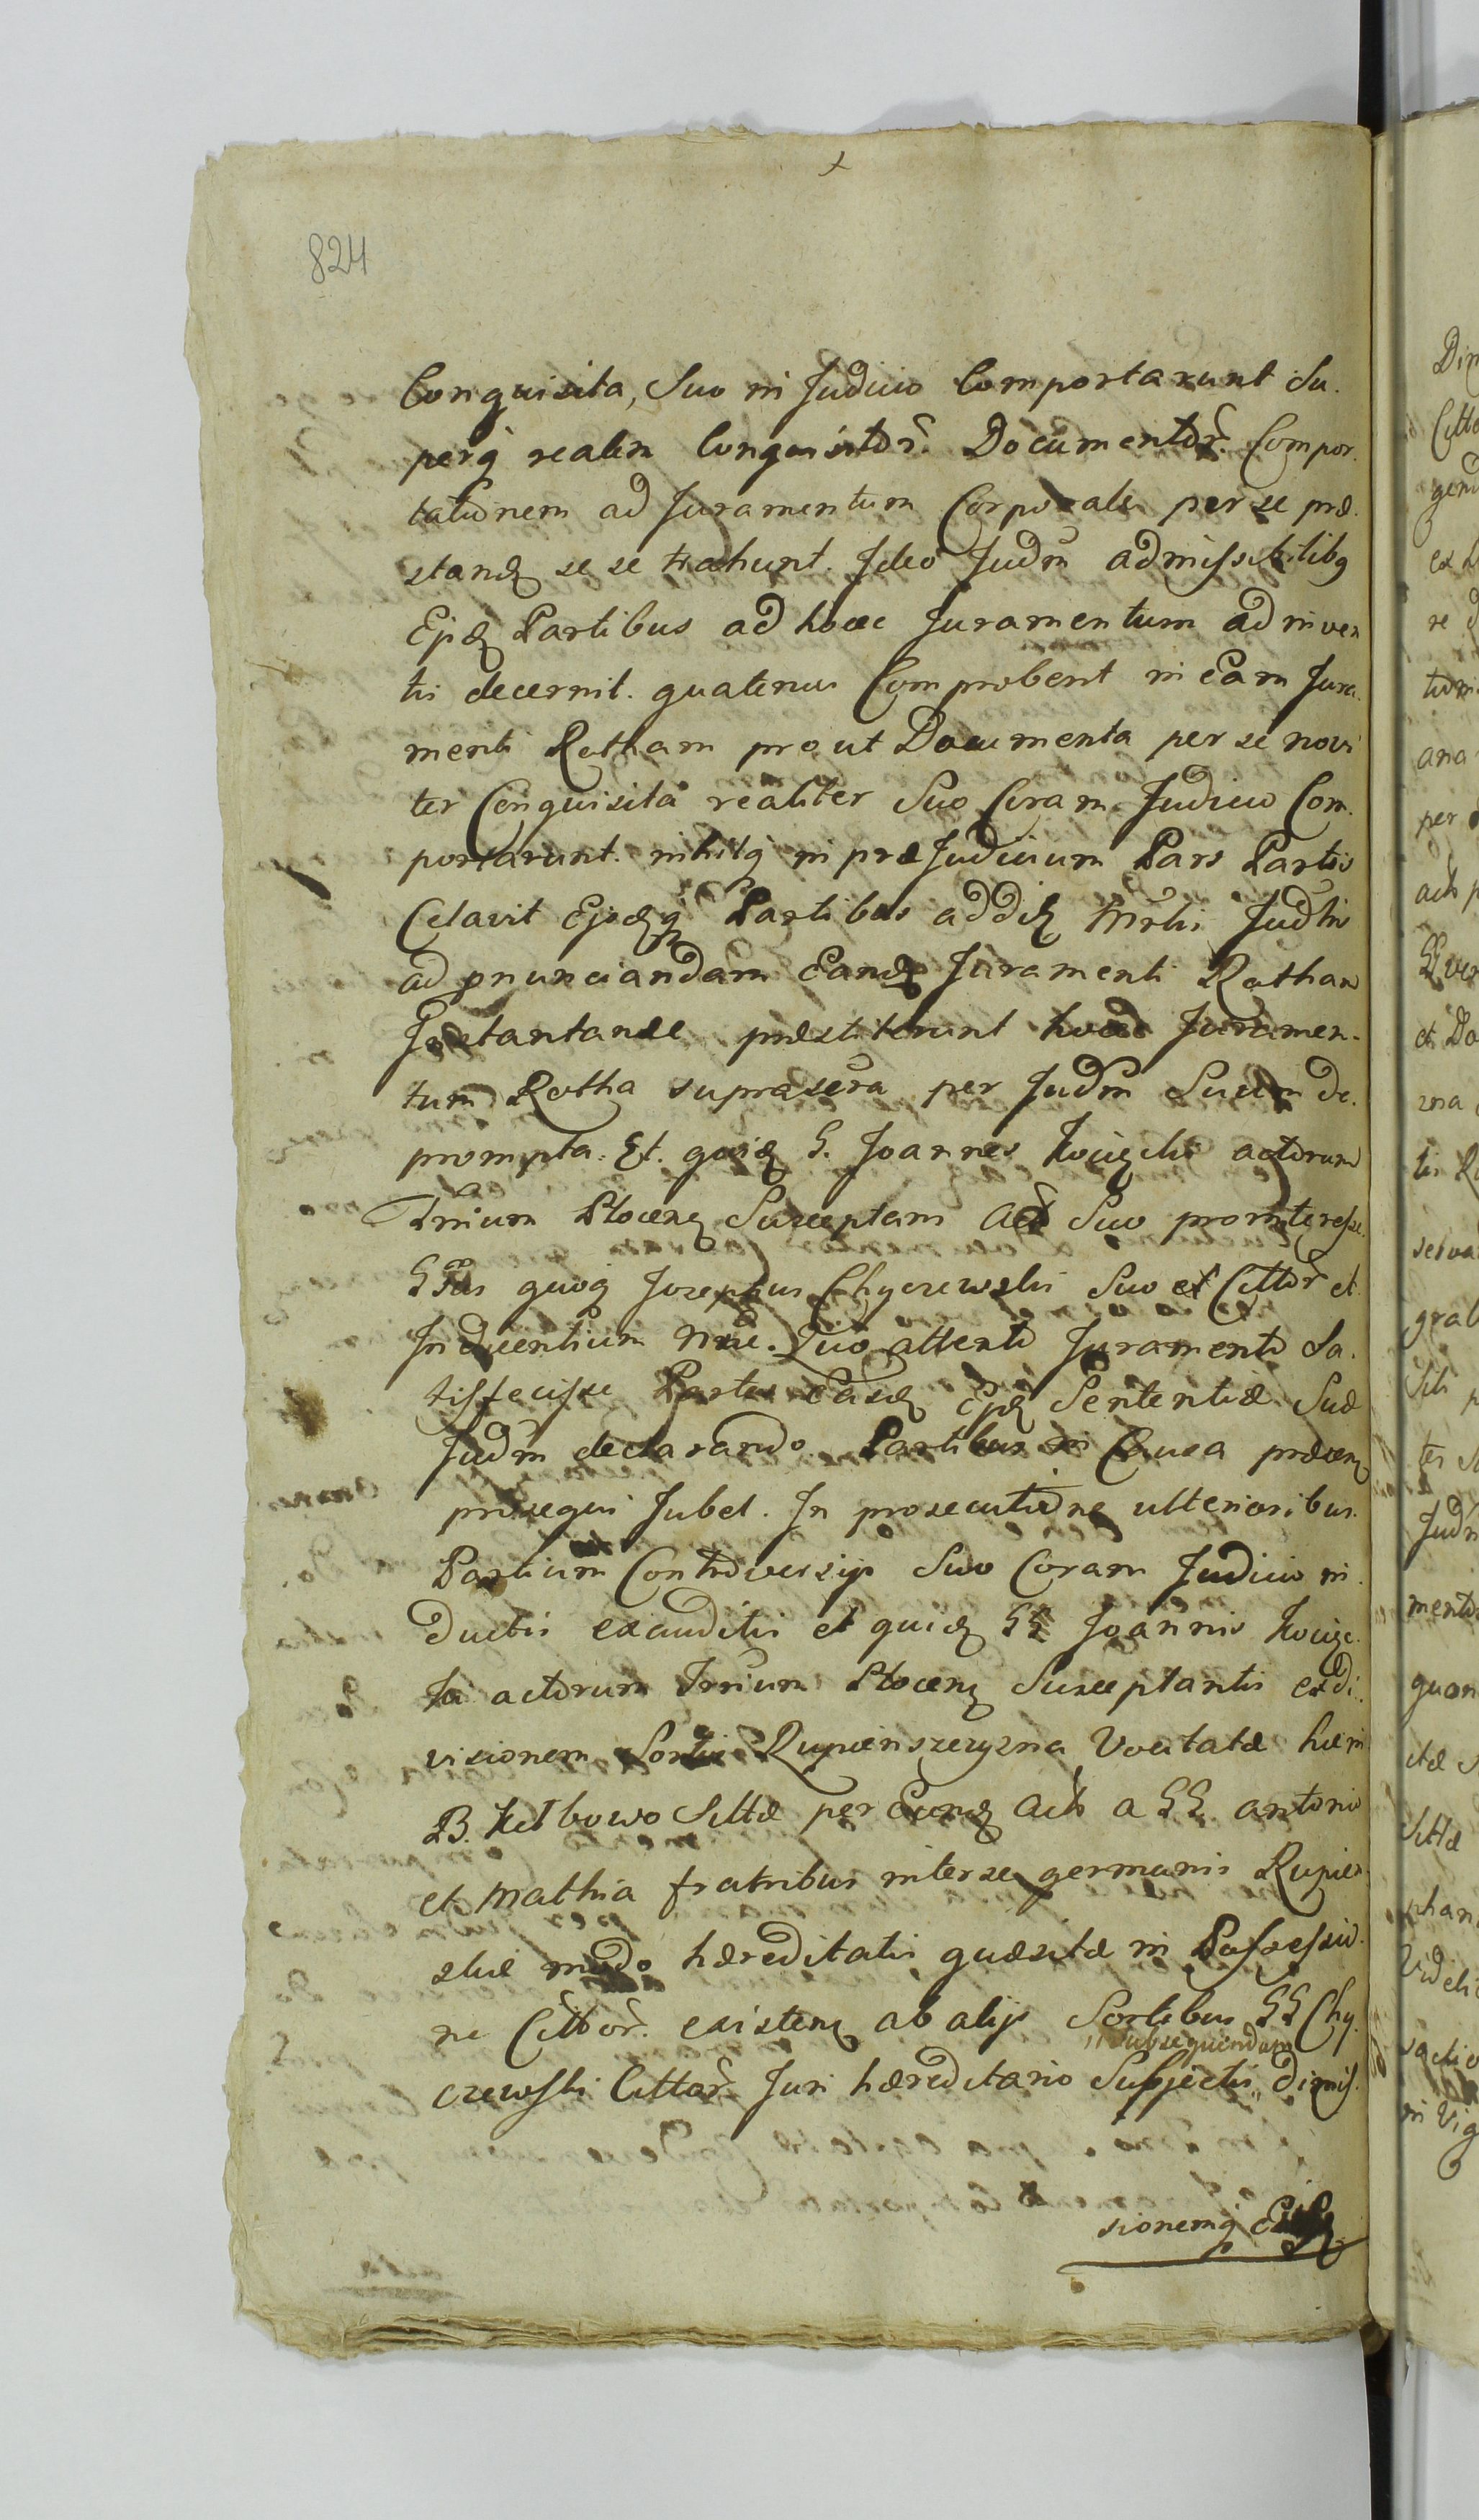 824
Conquisita, Suo in Judicio Comportarunt Su.
perq realem Conquisitor̃. Documentor̃. Compor.
tationem ad Juramentum Corporale per se præ.
stanđ se se trahunt. Ideo Judm̃ admissibilibq
Ejsđ Partibus ad hocce Juramentum ad inven
tis decernit. quatenus Comprobent in Eam Jura.
menti Rotham prout Documenta per se novi
ter Conquisita realiter Suo Coram Judicio Com.
portarunt. nihilq in præJudicium Pars Partis
Celavit Ejsdemq Partibus addit Judlis
ad pnunciandam Eandem Juramenti Rotham
Instantanee præstiterunt hocce Juramen-
tum Rotha suprascra per Judm̃ Suum de.
prompta. Et. quiđ G. Joannes actorum
Trrium Plocenq Susceptam Suo
quoq Josephus Chyczewski Suo et Cittor̃ et
Inducentium nne. Quo attento Juramento Sa.
tisfecisse Partes Easđ Ejsđ Sententiæ Suæ
Judm̃ declarando Partibus in Causa præsenq
prosequi Jubet. In prosecutione ulterioribus.
Partium Controversijs Suo Coram Judicio in.
ductis exauditis et quiđ GG Joannis
actorum Trrium Plocenq Susceptantis ex di.
visionem Sortis Rupienszczyzna Vocitatæ hæ in
B. Kiełbowo Sittæ per Eunđ Actō a GG. antonio
et Mathia fratribus inter se germanis Rupien
skie modo hæreditatis quæsitæ in Possessio.
ne Cittor̃. existenq ab alijs Sortibus GG Chy.
" subsequendam
czewski Cittor̃ Juri hæreditario Subjectis " dimis.
sionemq